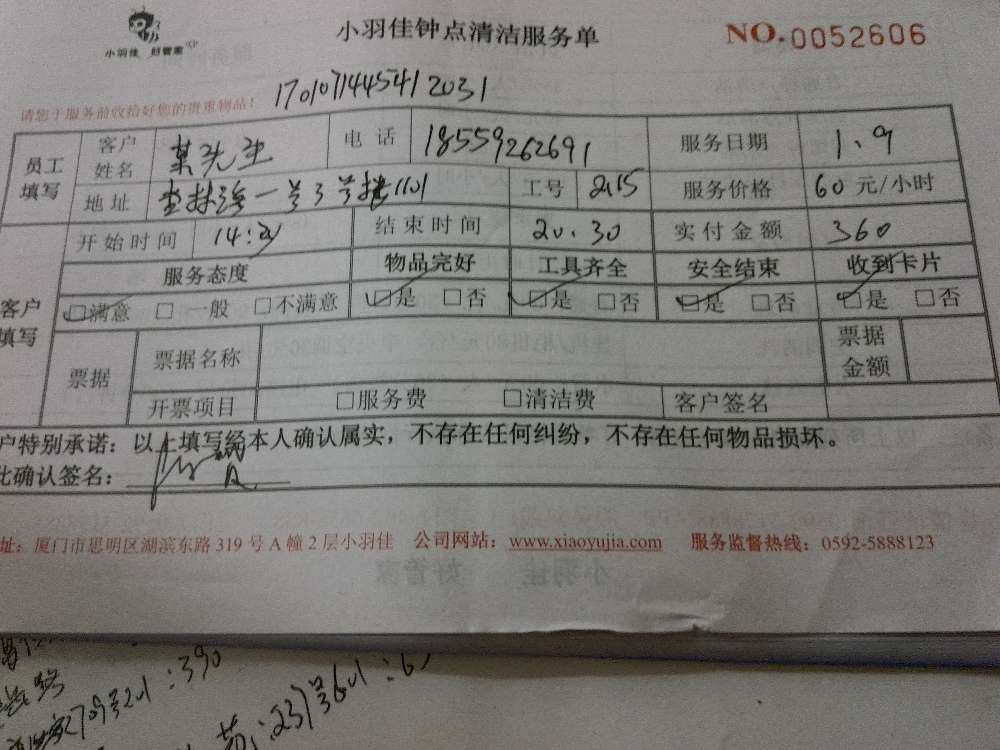 小羽佳 好管家
小羽佳钟点清洁服务单
NO.0052606
请您于服务前收拾好您的贵重物品！
1701071445412031
员工填写 客户姓名 某先生 电话 18559262691 服务日期 1.9
地址 一号3号楼1101 工号 2115 服务价格 60元/小时
客户填写 开始时间 14: 结束时间 20.30 实付金额 360
服务态度 物品完好 工具齐全 安全结束 收到卡片
☑满意 □一般 □不满意 ☑是 □否 ☑是 □否 ☑是 □否 ☑是 □否
票据 票据名称 票据金额
开票项目 □服务费 □清洁费 客户签名
户特别承诺：以上填写经本人确认属实，不存在任何纠纷，不存在任何物品损坏。
此确认签名：
址：厦门市思明区湖滨东路319号A幢2层小羽佳 公司网站：www.xiaoyujia.com 服务监督热线：0592-5888123
小羽佳 好管家
路
709号201：390
：237号601：6